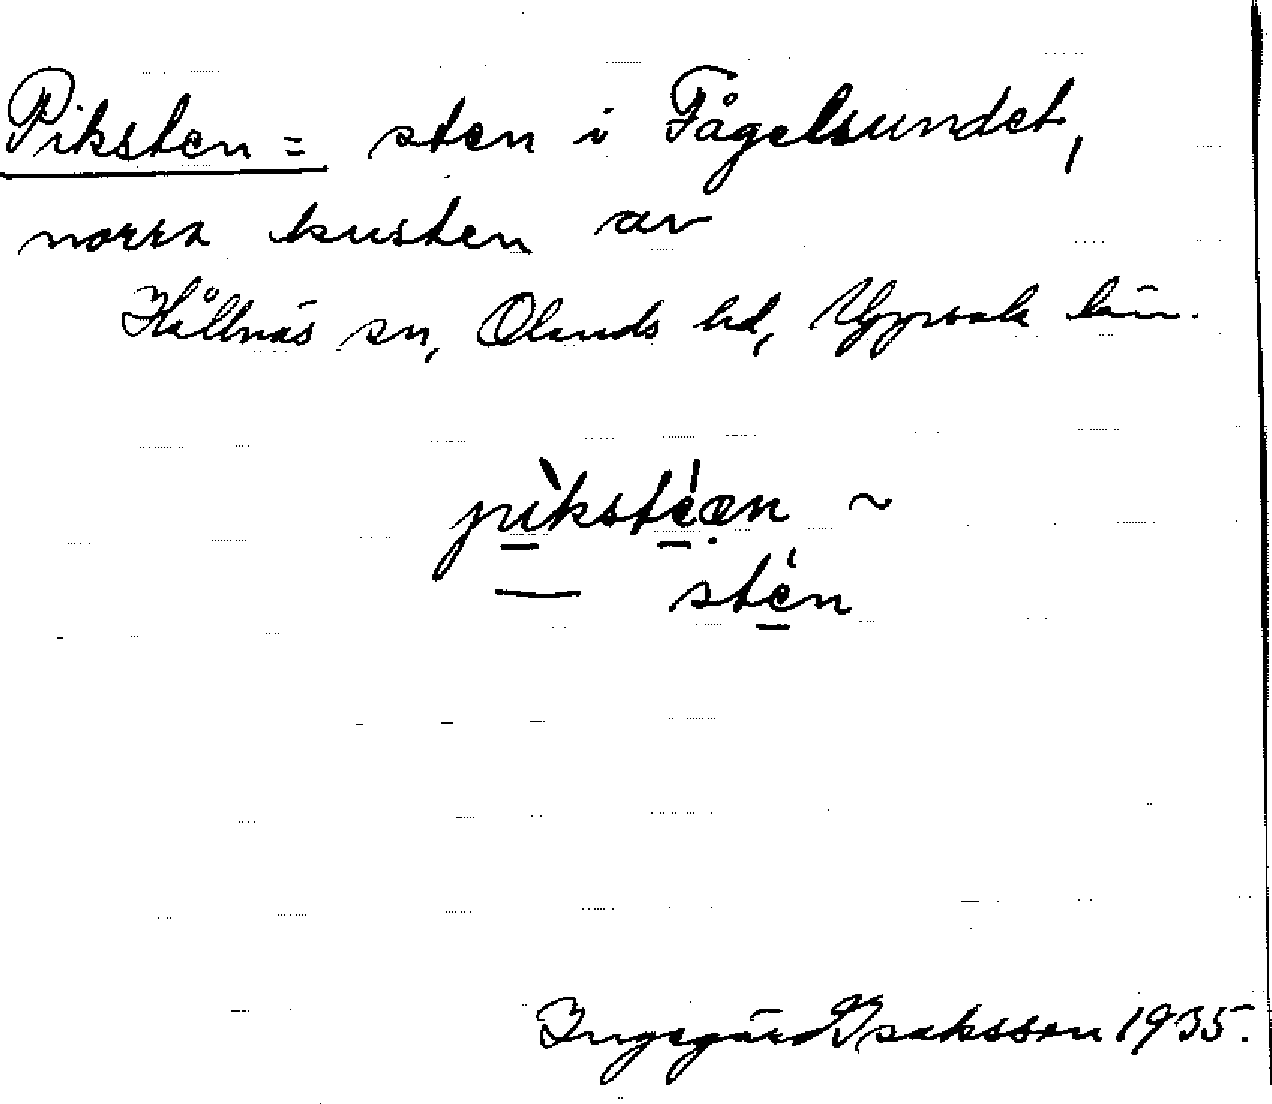 Piksten = sten i Fågelsundet,
norra kusten av
Hållnäs sn, Olands hd, Uppsala län.
pìkstéæn ~
— stén
Ingegärd Isaksson 1935.